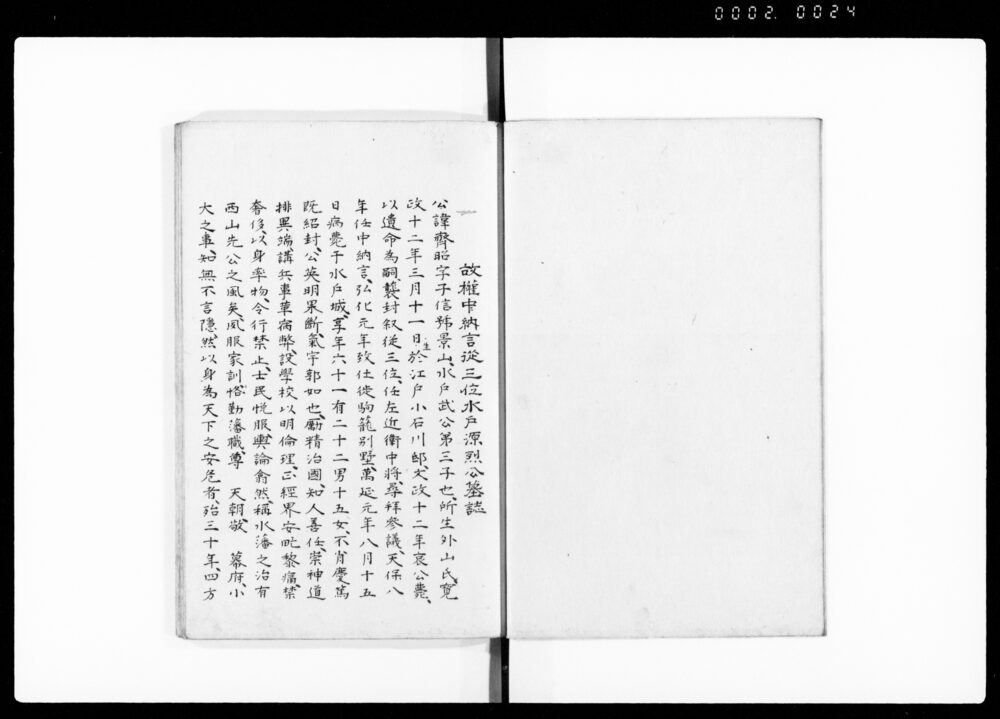 0002. 0024
故權中納言従三位水戶源烈公墓誌
一
公諱齊昭、字子信、號景山、水戶武公第三子也、所生外山氏、寛
政十二年三月十一日生於江戶小石川邸、文政十二年哀公薨、
以遺命為嗣、襲封叙従三位、任左近衛中将、尋拜參議、天保八
年任中納言、弘化元年致仕徙駒籠別墅、萬延元年八月十五
日病薨于水戶城、享年六十一、有二十二男十五女、不肖慶篤
既紹封、公英明果斷、氣宇郭如也、勵精治國、知人善任、崇神道
排異端、講兵事革宿弊、設學校以明倫理、正經界安毗黎、痛禁
奢侈、以身率物、令行禁止、士民悅服、輿論翕然、稱水藩之治有
西山先公之風矣、夙服家訓、恪勤藩職、尊　天朝、敬　幕府、小
大之事、知無不言、隱然以身為天下之安危者殆三十年、四方